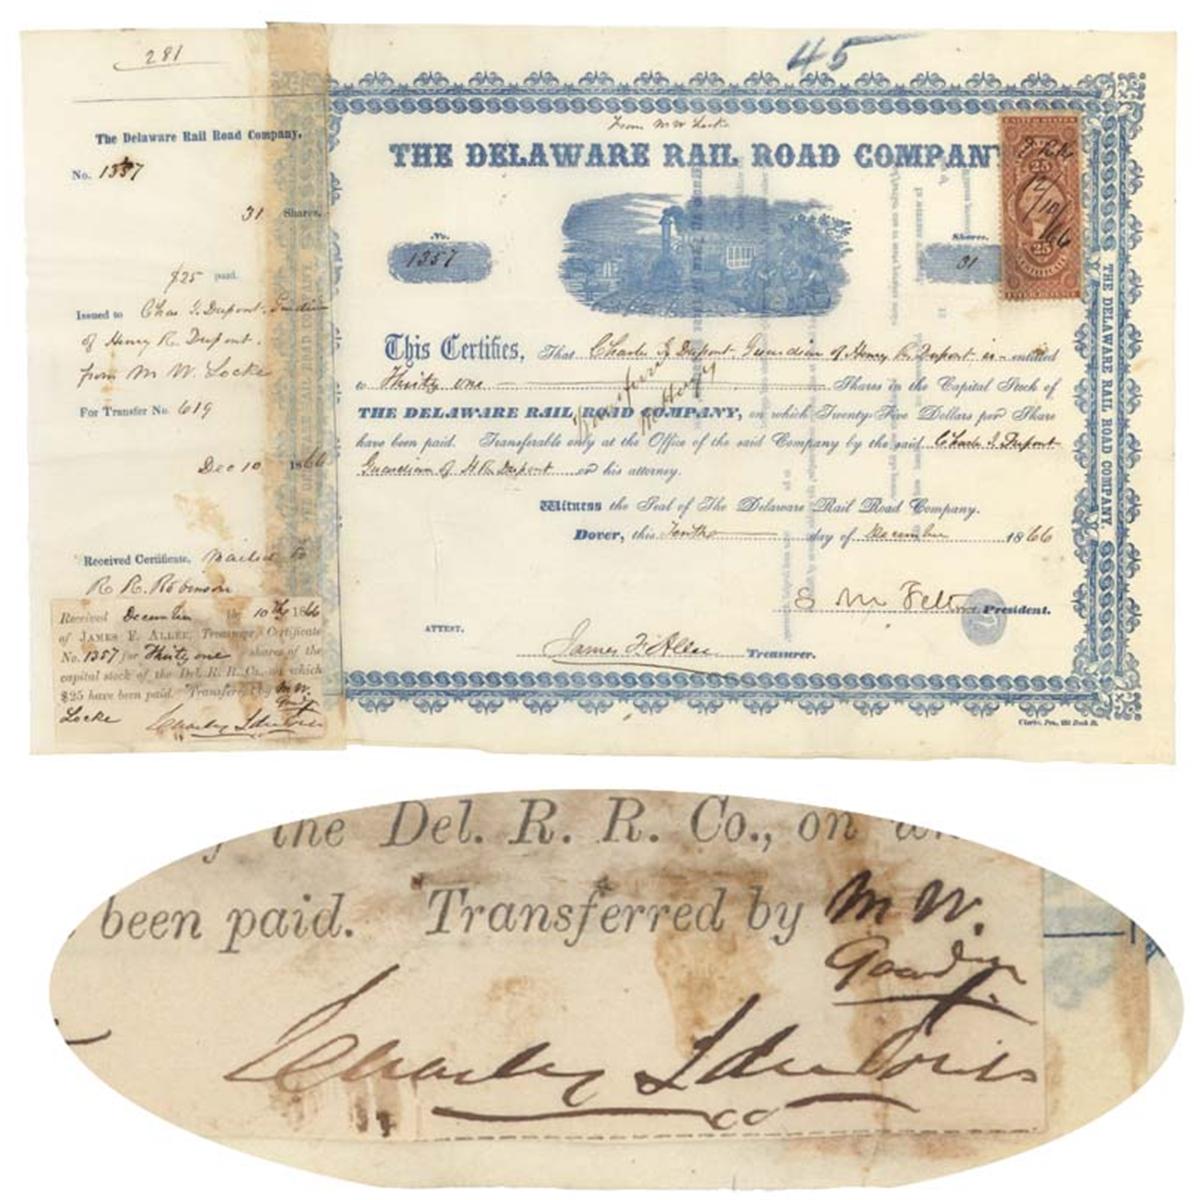 281
The Delaware Rail Road Company.
No. 1357
31 Shares.
$25 paid.
Issued to Chas I. Dupont. Guardian
of Henry R. Dupont.
from M W. Locke
For Transfer No. 619
Dec 10 1866
Received Certificate. mailed to
R R. Robinson
Received December the 10th 1866
of JAMES F. ALLEE, Treasurer, Certificate
No. 1357 for Thirty one shares of the
capital stock of the Del. R. R. Co., on which
$25 have been paid. Transferred by M W.
Locke
45
From M W Locke
THE DELAWARE RAIL ROAD COMPANY
No.
1357
Shares.
31
UNITED STATES
25
2/10/66
25
CERTIFICATE
This Certifies, That Charles I. Dupont Guardian of Henry R. Dupont is entitled
to Thirty one Shares in the Capital Stock of
THE DELAWARE RAIL ROAD COMPANY, on which Twenty Five Dollars per Share
have been paid. Transferable only at the Office of the said Company by the said Charles I. Dupont
Guardian of H R Dupont or his attorney.
Witness the Seal of The Delaware Rail Road Company.
Dover, this Tenth day of December 1866
S M Felton President.
ATTEST.
James F. Allee Treasurer.
THE DELAWARE RAIL ROAD COMPANY.
the Del. R. R. Co., on wh
been paid. Transferred by M W.